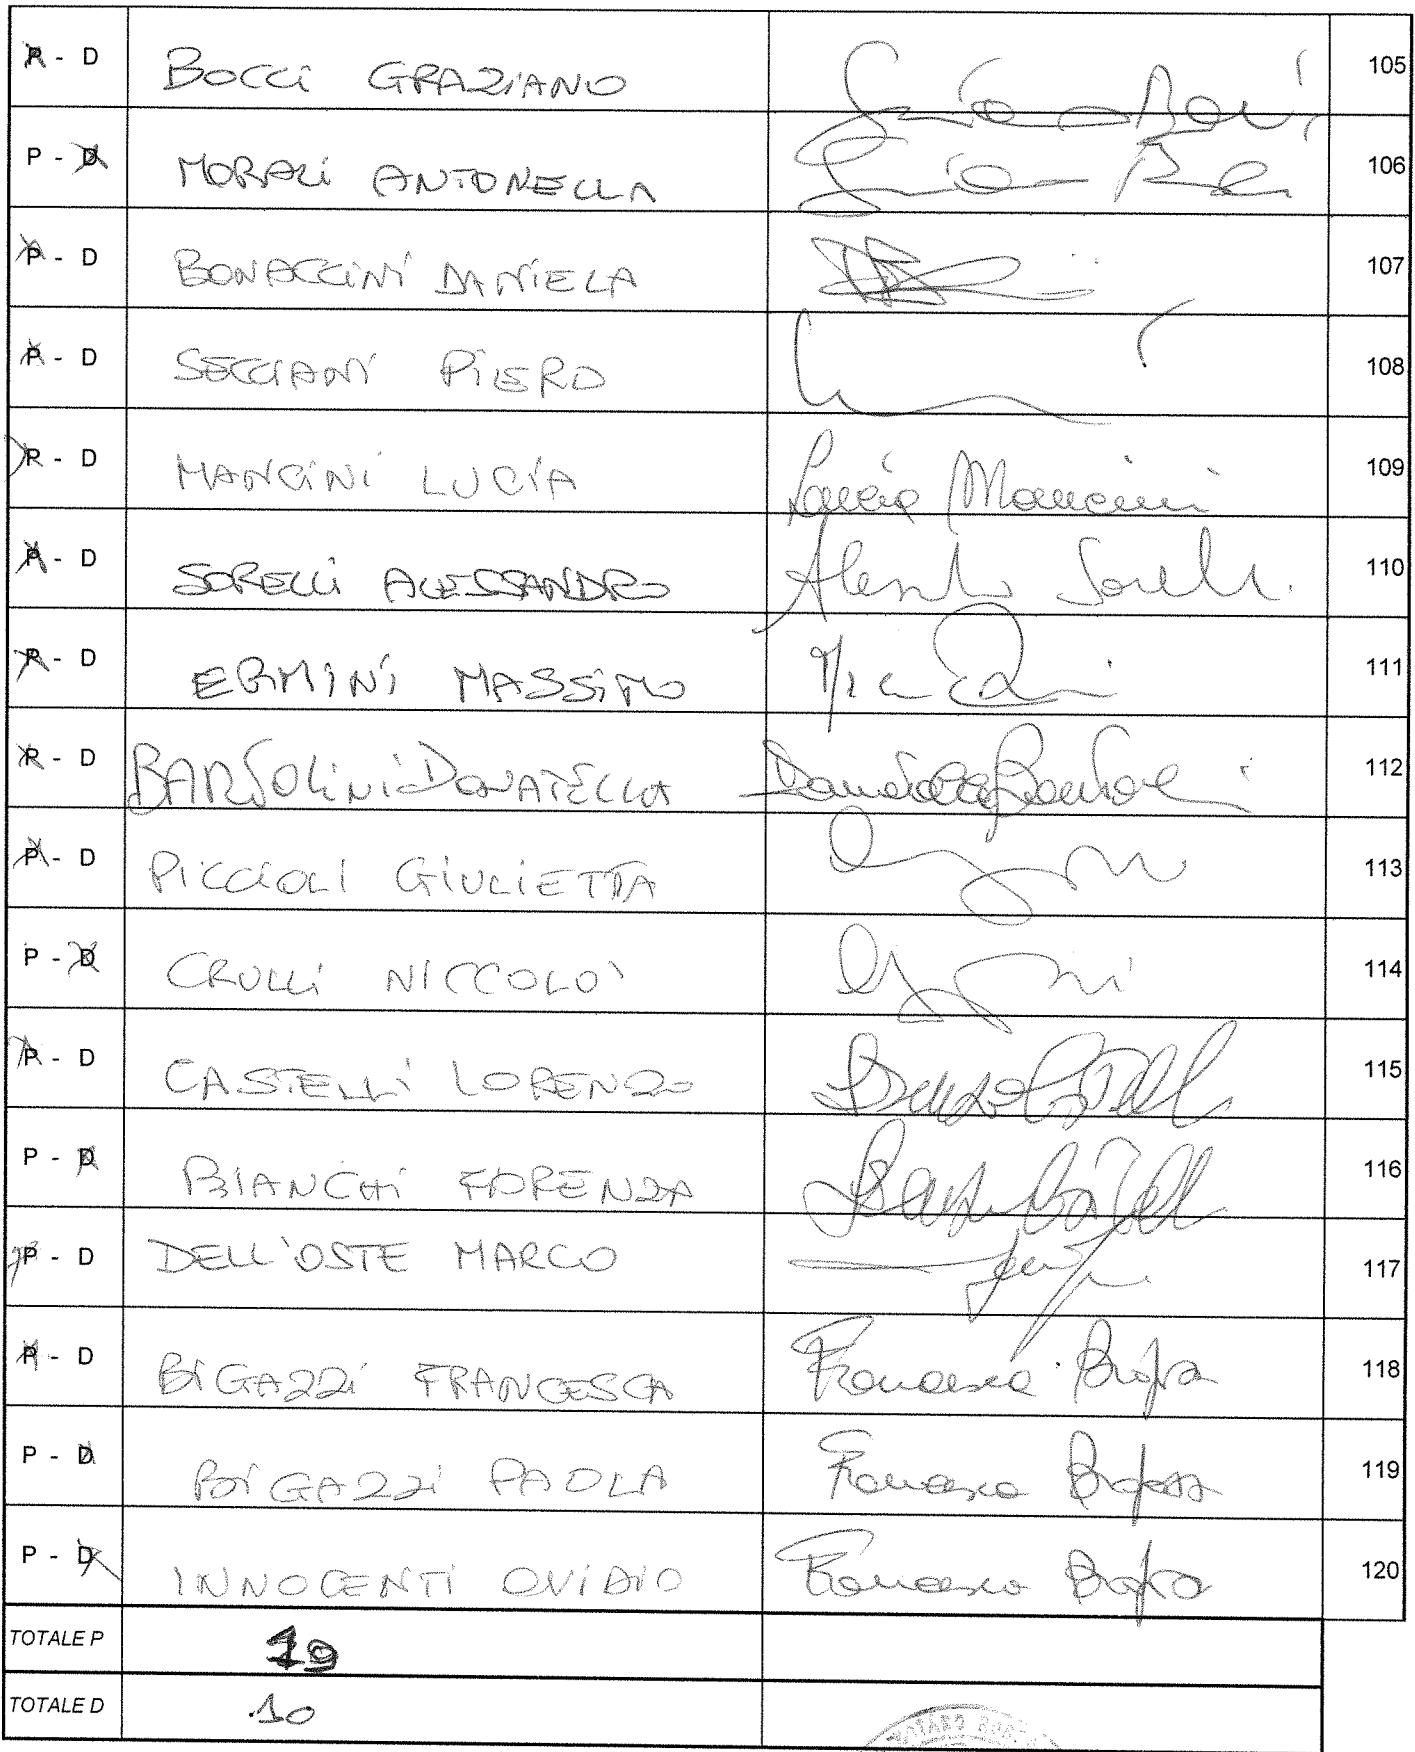 P - D BOCCI GRAZIANO 105
P - D MORALI ANTONELLA 106
P - D BONACCINI DANIELA 107
P - D SECCIANI PIERO 108
P - D MANCINI LUCIA Lucia Mancini 109
P - D SORELLI ALESSANDRO 110
P - D ERMINI MASSIMO 111
P - D BARTOLINI DONATELLA 112
P - D PICCIOLI GIULIETTA 113
P - D CRULLI NICCOLO' 114
P - D CASTELLI LORENZO 115
P - D BIANCHI FIORENZA 116
P - D DELL'OSTE MARCO 117
P - D BIGAZZI FRANCESCA Francesca 118
P - D BIGAZZI PAOLA Francesca 119
P - D INNOCENTI OVIDIO Francesca 120
TOTALE P 19
TOTALE D 10